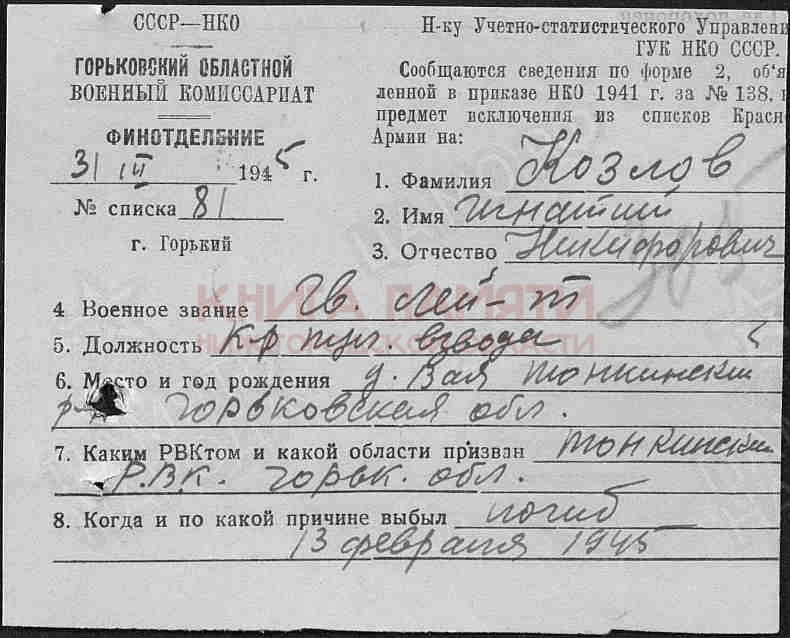 СССР—НКО
ГОРЬКОВСКИЙ ОБЛАСТНОЙ
ВОЕННЫЙ КОМИССАРИАТ
ФИНОТДЕЛЕНИЕ
31 III 1945 г.
№ списка 81
г. Горький
Н-ку Учетно-статистического Управлени
ГУК НКО СССР.
Сообщаются сведения по форме 2, объя
ленной в приказе НКО 1941 г. за № 138,
предмет исключения из списков Красн
Армии на:
1. Фамилия Козлов
2. Имя Игнатий
3. Отчество Никифорович
4 Военное звание Гв. лей-т
КНИГА ПАМЯТИ
НИЖЕГОРОДСКОЙ ОБЛАСТИ
5. Должность К-р пул. взвода
6. Место и год рождения д. Вая Тонкинский
р- Горьковская обл.
7. Каким РВКтом и какой области призван Тонкинским
Р.В.К. Горьк. обл.
8. Когда и по какой причине выбыл погиб
13 февраля 1945